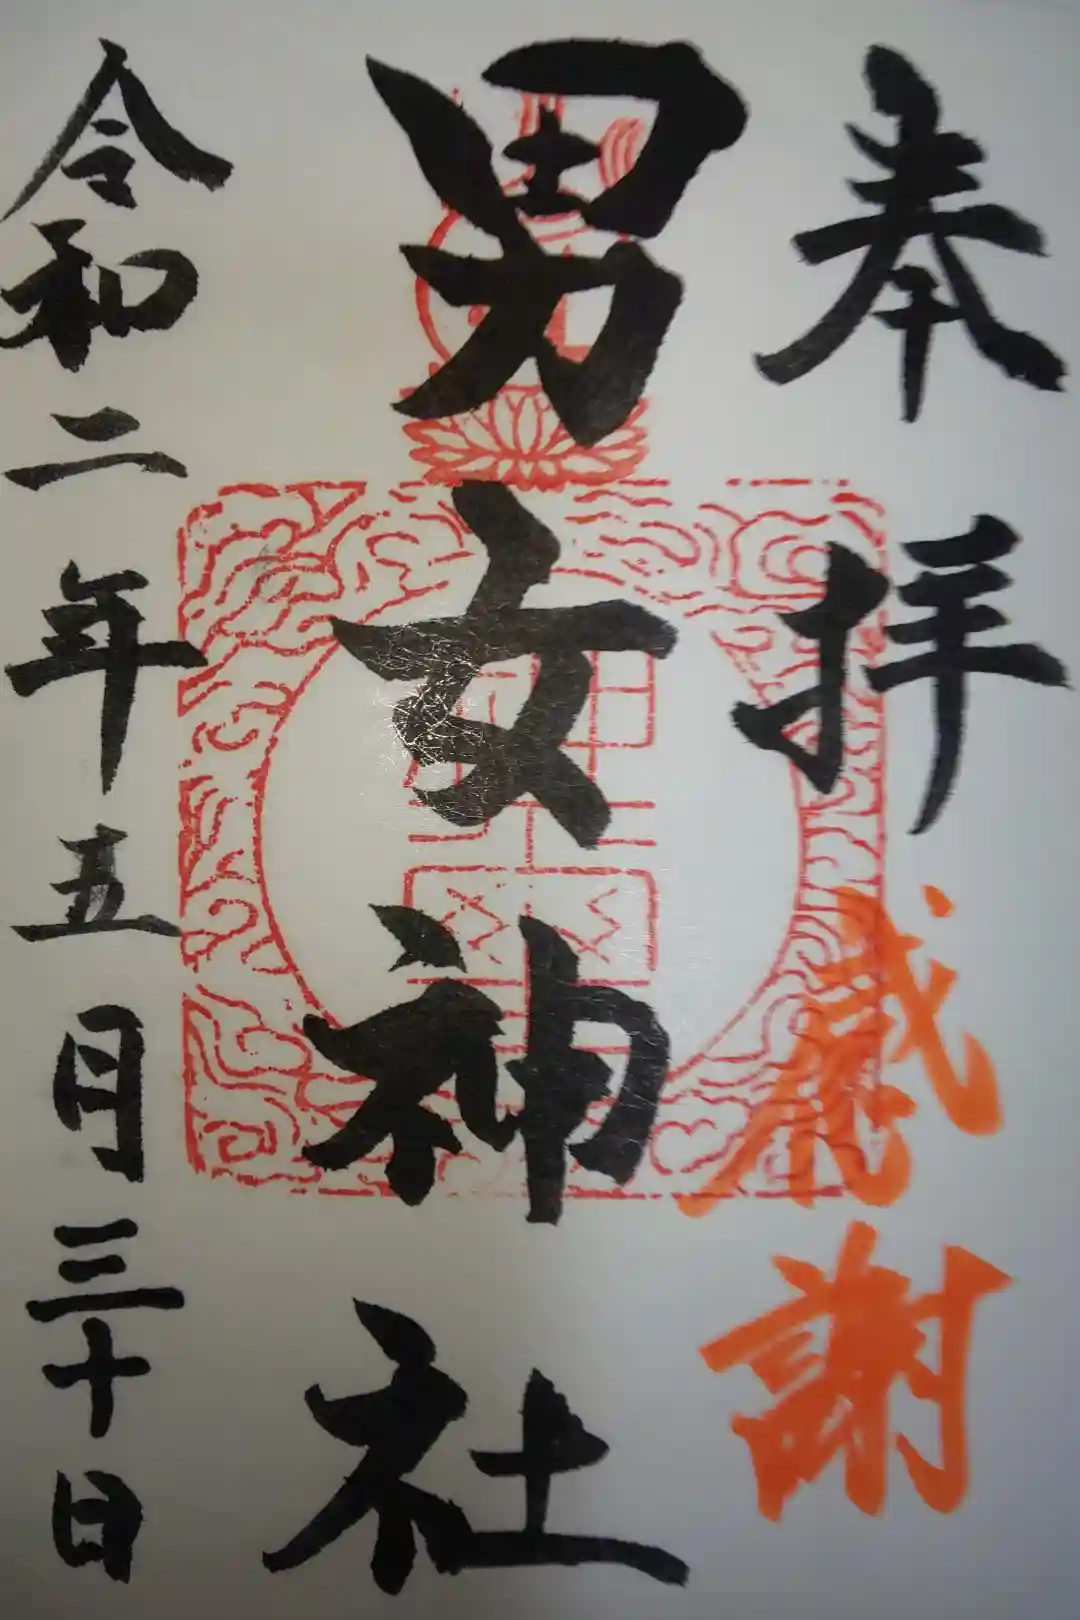 奉拝
感謝
男女神社
令和二年五月三十日